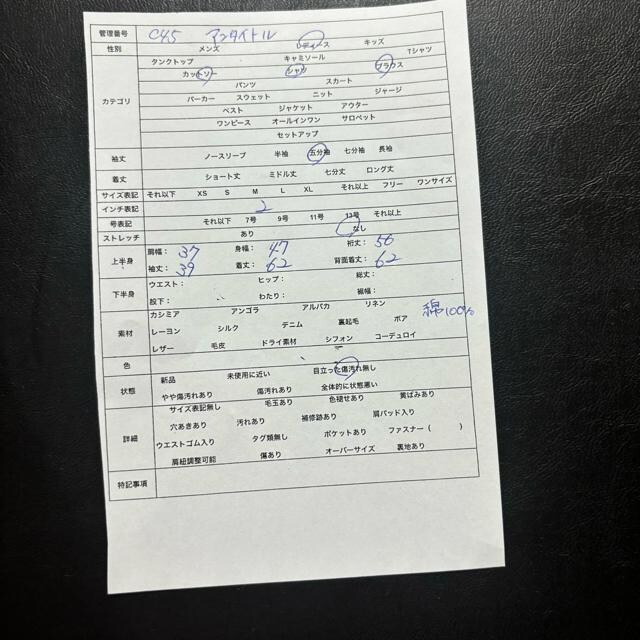 管理番号 C45 アンタイトル
性別 メンズ レディース キッズ
カテゴリ タンクトップ キャミソール Tシャツ
カットソー シャツ ブラウス
パンツ スカート
パーカー スウェット ニット ジャージ
ベスト ジャケット アウター
ワンピース オールインワン サロペット
セットアップ
袖丈 ノースリーブ 半袖 五分袖 七分袖 長袖
着丈 ショート丈 ミドル丈 七分丈 ロング丈
サイズ表記 それ以下 XS S M L XL それ以上 フリー ワンサイズ
インチ表記 2
号表記 それ以下 7号 9号 11号 13号 それ以上
ストレッチ あり なし
上半身 肩幅: 37 身幅: 47 裄丈: 56
袖丈: 39 着丈: 62 背面着丈: 62
下半身 ウエスト: ヒップ: 総丈:
股下: わたり: 裾幅:
素材 カシミア アンゴラ アルパカ リネン 綿100%
レーヨン シルク デニム 裏起毛 ボア
レザー 毛皮 ドライ素材 シフォン コーデュロイ
色
状態 新品 未使用に近い 目立った傷汚れ無し
やや傷汚れあり 傷汚れあり 全体的に状態悪い
詳細 サイズ表記無し 毛玉あり 色褪せあり 黄ばみあり
穴あきあり 汚れあり 補修跡あり 肩パッド入り
ウエストゴム入り タグ類無し ポケットあり ファスナー ( )
肩紐調整可能 傷あり オーバーサイズ 裏地あり
特記事項